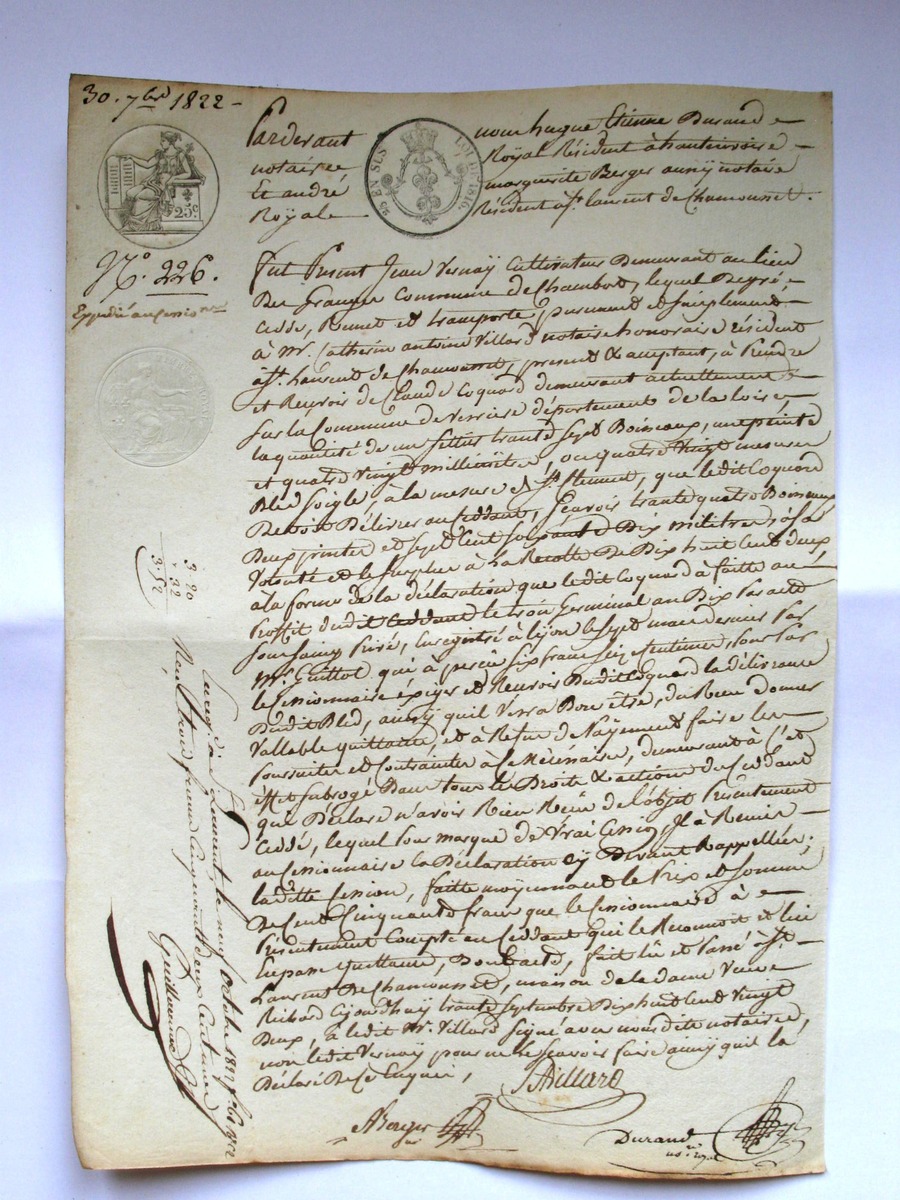 30. 7bre 1822 -
Pardevant nous hugue Etienne Durand
notaire Royal Résident à hauterivoire
Et andré marguerite Berger aussy notaire
Royale Résident à st. laurent de Chamousset.
25 EN SUS LOI DE 1816.
25c
No. 226.
Expedié au cession.re
fut Présent Jean Vernay Cultivateur Demeurant au lieu
Des Granges Commune de Chambost, lequel Degré,
Cedde, Remet et transporte, purement et Simplement
à Mr. Catherin antoine Villard notaire honoraire Résident
à st. Laurent de Chamousset, present & acceptant, à Prendre
et Recevoir de Claude Coquard demeurant actuellement
Sur la Commune de département de la loire,
la quantité de un Settier trante Sept Boisseaux, une peinte
et quatre Vingt millilitre, ou quatre Vingt mesures
Bled Soigle, à la mesure de St. que ledit Coquard
Devoit Délivrer au Ceddant, Scavoir trante quatre Boisseaux
Deux printer et Sept Cent Soixante Dix militres, à Sa
Volonté et le Surplus à la Recolte De Dix huit Cent deux
à la forme de la déclaration que ledit Coquard à faitte au
Proffit dudit Ceddant le trois Germinal an Dix Par acte
Sous Saing Privé, Enregistré à lyon le Sept mars dernier Par
Mr. Guittot qui à perçu Six francs Seize Centimes, Pour Par
le Cessionnaire éxiger et Recevoir Dudit Coquard la délivrance
Dudit Bled, aussy quil Verra Bon être, du Reçu donner
Vallable quittance, et à Refus de Payement faire les
Poursuites et Contraintes à Ce Nécessaire, demeurant à Cet
éffet Subrogé Dans tous les Droits & actions du Ceddant
que Déclare n'avoir Rien Reçu de l'objet Présentement
Ceddé, lequel Pour marque de Vrai Cession, Il à Remis
au Cessionnaire la Déclaration Cy Devant Rappellée;
la ditte Cession, faitte moyennant le Prix et Somme
De Cent Cinquante francs que le Cessionnaire à
Présentement Compté au Ceddant qui le Reconnoit et lui
En passe Quittance, Dont acte, fait lû et Passé à St.
Laurent De Chamousset, maison de la dame Veuve
Richard Cejourdhuy trante Septembre Dix huit Cent Vingt
Deux, à ledit Mr. Villard Signé avec nous dits notaires,
non ledit Vernay pour ne le Scavoir faire ainsy quil la
Déclaré De Ce Enquis,
Villard
ABerger
Durand
no.re royal
3 20
" 32
3. 52
Enreg. à St Laurent le neuf octobre 1822 fo 60
Reçu trois francs Cinquante deux Centimes
Guillermod